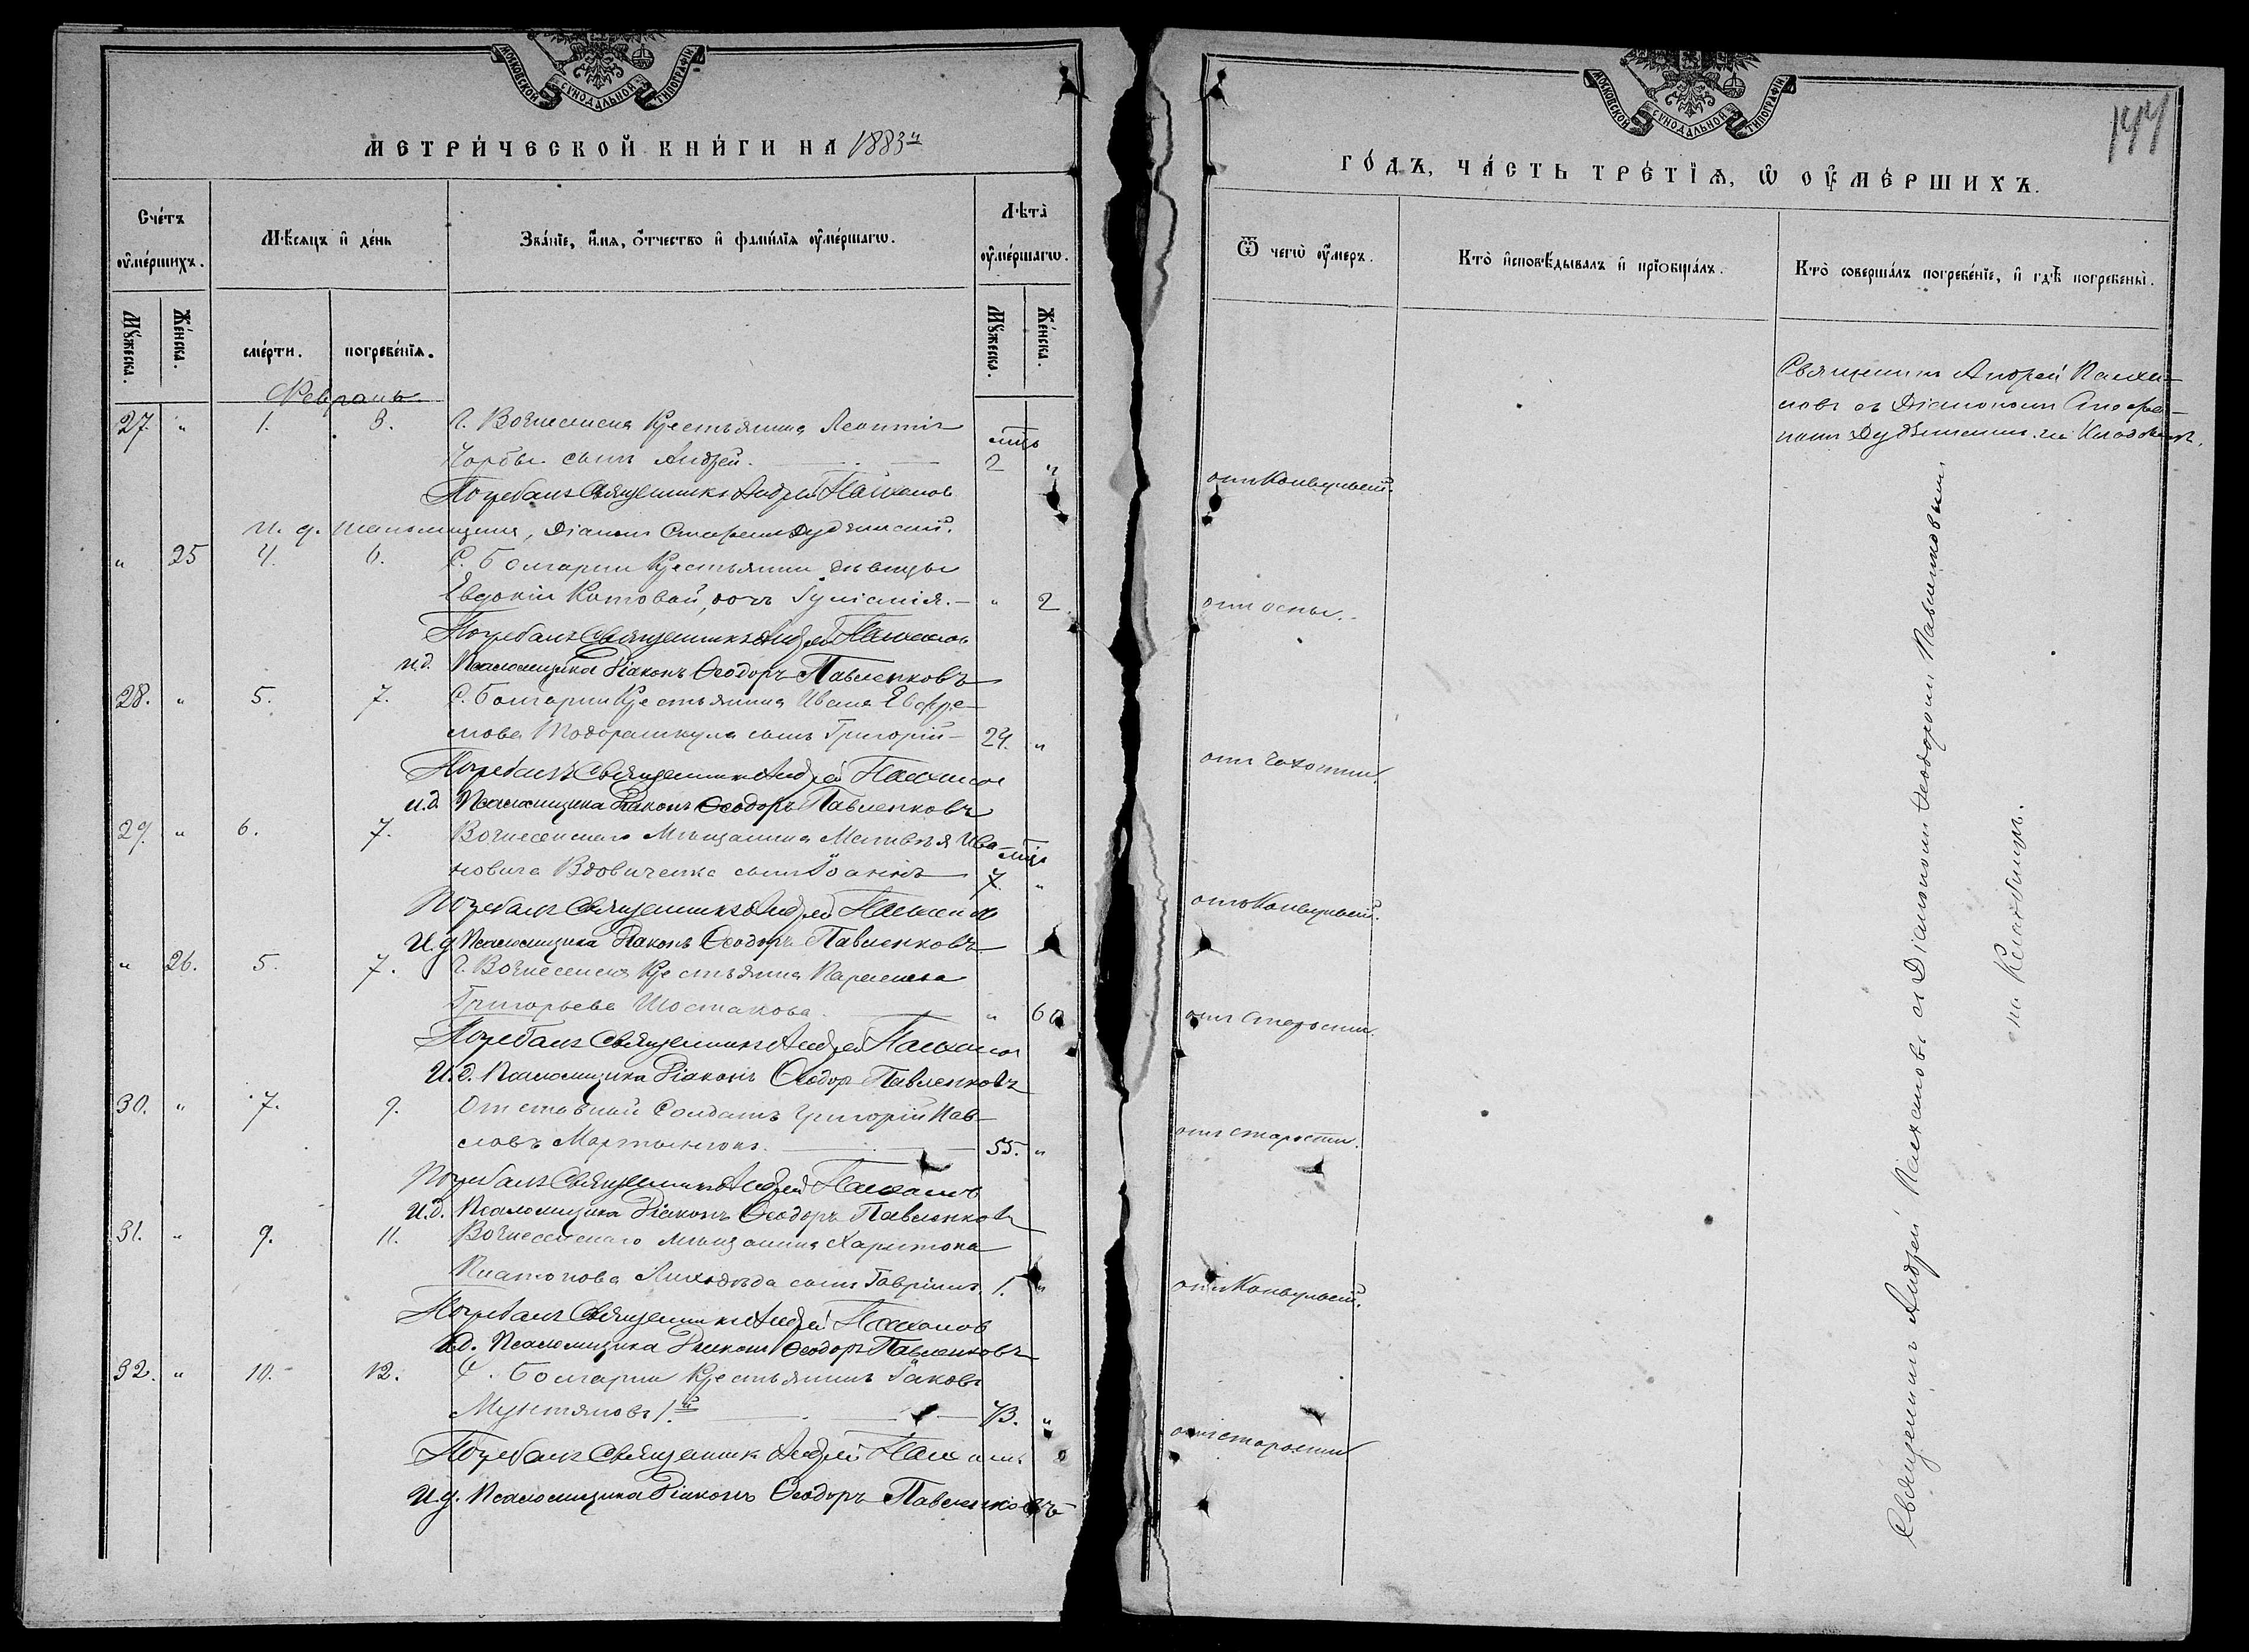 МОСКОВСКОЙ СѴНОДАЛЬНОЙ ТИПОГРАФІИ
МЕТРИ́ЧЕСКОЙ КНИ́ГИ НА 1883й
Сче́тъ ᲂу҆ме́ршихъ.
Мѣ́сяцъ и҆ де́нь
Зва́нїе, и҆́мѧ, ѻ҆́тчество и҆ фами́лїѧ ᲂу҆ме́ршагѡ.
Лѣ́та ᲂу҆ме́ршагѡ.
Мꙋ́жеска.
Же́нска.
сме́рти.
погребе́нїѧ.
Мꙋ́жеска.
Же́нска.
Февраль
27. " 1. 3. г. Вознесенска Крестьянина Леонтія
сынъ Андрей. 2 "
Погребалъ Священникъ Андрей Палхановъ
и. д. Псаломщика, Діаконъ Стефанъ Дубинскій.
" 25 4. 6. С. Болгарки Крестьянки дѣвицы
Евдокіи Котовой, дочь Іуліанія. " 2.
Погребалъ Священникъ Андрей Палхановъ
и.д. Псаломщика Діаконъ Ѳеодоръ Павленковъ
28. " 5. 7. С. Болгарки Крестьянина Ивана Евфре-
мова сынъ Григорій 24. "
Погребалъ Священникъ Андрей Палхановъ
и.д. Псаломщика Діаконъ Ѳеодоръ Павленковъ
29. " 6. 7. Вознесенскаго Мѣщанина Матвѣя Ива-
новича Вдовиченка сынъ Іоаннъ 7. "
Погребалъ Священникъ Андрей Палхановъ
И.д. Псаломщика Діаконъ Ѳеодоръ Павленковъ
" 26. 5. 7. г. Вознесенска Крестьянка Параскева
Григорьева Шостакова. " 60
Погребалъ Священникъ Андрей Палхановъ
И.д. Псаломщика Діаконъ Ѳеодоръ Павленковъ
30. " 7. 9. Отставной Солдатъ Григорій Пав-
ловъ 55. "
Погребалъ Священникъ Андрей Палхановъ
И.д. Псаломщика Діаконъ Ѳеодоръ Павленковъ
31. " 9. 11. Вознесенскаго мѣщанина Харитона
Платонова Лиходѣда сынъ Гавріилъ. 1. "
Погребалъ Священникъ Андрей Палхановъ
И.д. Псаломщика Діаконъ Ѳеодоръ Павленковъ
32. " 10. 12. С. Болгарки Крестьянинъ Іаковъ
Мунтяновъ 1й 73. "
Погребалъ Священникъ Андрей Палхановъ
И.д. Псаломщика Діаконъ Ѳеодоръ Павленковъ
МОСКОВСКОЙ СѴНОДАЛЬНОЙ ТИПОГРАФІИ
ГО́ДЪ, ЧА́СТЬ ТРЕ́ТЇѦ, Ѡ҆ ᲂУ҆МЕ́РШИХЪ.
Ѿ чегѡ̀ ᲂу҆́меръ.
Кто̀ и҆сповѣ́дывалъ и҆ прїобща́лъ.
Кто̀ соверша́лъ погребе́нїе, и҆ гдѣ̀ погребены̀.
Священникъ Андрей Палха-
новъ съ Діакономъ Стефа-
номъ Дубинскимъ на Кладбищѣ.
отъ Конвульсій.
отъ оспы.
отъ чахотки.
отъ Конвульсій.
отъ старости.
отъ старости.
отъ Конвульсій.
отъ старости
Священникъ Андрей Палхановъ съ Діакономъ Ѳеодоромъ Павленковымъ
на Кладбищѣ.